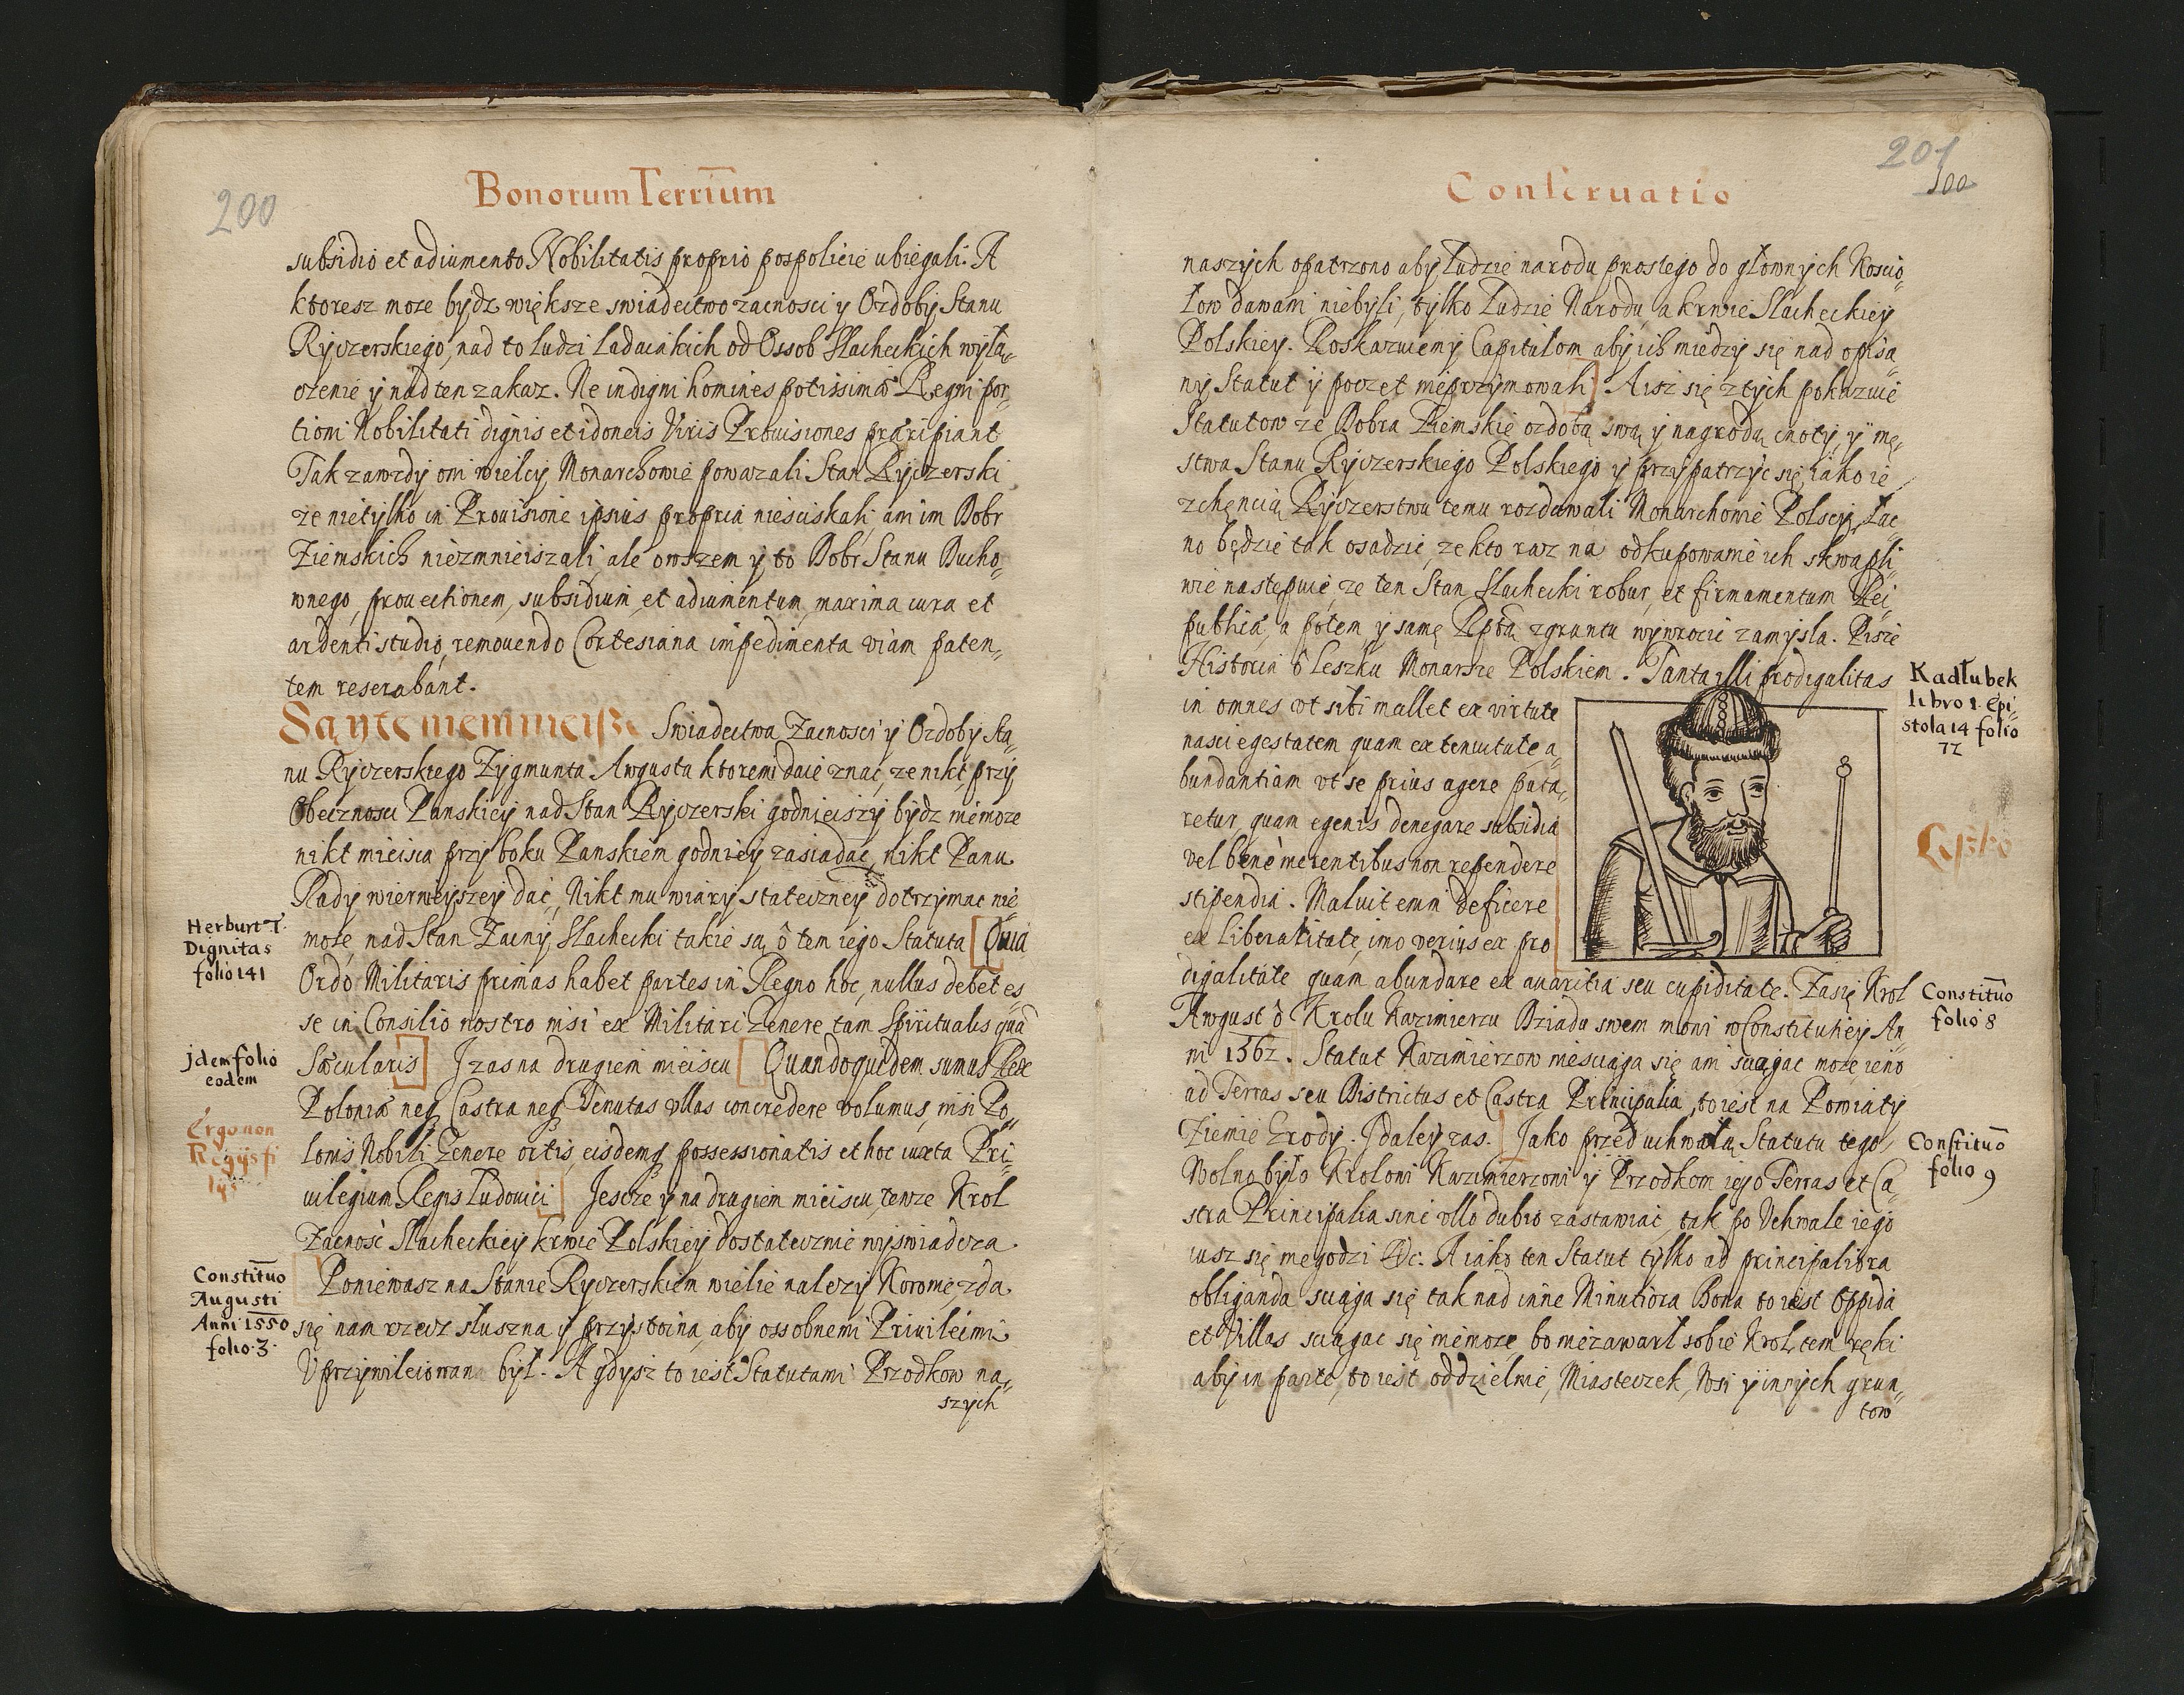 200
Bonorum Terrium
subsidio et adiumento Nobilitatis proprio pospolicie ubiegali. A
ktoresz moze bydz większe swiadectwo zacnosci y Ozdoby Stanu
Ryczerskiego, nad to ludzi ladaiakich od Ossob Slacheckich wyłą„
czenie y nad ten zakaz. Ne indigni homines potissimæ Regni por„
tioni Nobilitati dignis et idoneis Viris Prouisiones præripiant
Tak zawzdy oni wielcy Monarchowie powazali Stan Ryczerski
ze nietylko in Prouisione ipsius propria niesciskali, ani im Dobr
Ziemskich niezmnieiszali, ale owszem y to Dobr Stanu Ducho„
wnego, prouectionem, subsidium et adiumentum, maxima cura et
ardenti studio, remouendo Cortesiana impedimenta viam paten„
tem reserabant.
Są y te niemnieisze Swiadectwa Zacnosci y Ozdoby Sta„
nu Ryczerskiego Zygmunta Awgusta ktoremi daie znac, ze nikt przy
Obecznosci Panskiey nad Stan Ryczerski godnieiszy bydz niemoze
nikt mieisca przy boku Panskiem godniey zasiadac, nikt Panu
Rady wiernieyszey dać, Nikt mu wiary stateczney dotrzymac nie
Herburt T.
Dignitas
folio 141
moze, nad Stan Zacny Slachecki takie są o tem iego Statuta [Quia
Ordo Militaris primas habet partes in Regno hoc, nullus debet es„
se in Consilio nostro nisi ex Militari Genere, tam Spiritualis quā
jdem folio
eodem
Sæcularis] J zas na drugiem mieiscu [Quandoquidem sumus Rex
Poloniæ neq; Castra neq; Tenutas vllas concredere volumus, nisi Po„
Ergo non
Regijs fi
lijs
lonis Nobili Genere ortis, eisdemq; possessionatis et hoc iuxta Pri„
uilegium Regis Ludouici] Jescze y na drugiem mieiscu, tenze Krol
Zacnosc Slacheckiey krwie Polskiey dostatecznie wyswiadcza.
Constituō
Augusti
Anni 1550
folio 3.
[Poniewasz na Stanie Ryczerskiem wielie nalezy Koronie, zda
się nam rzecz słuszna y przystoina, aby ossobnemi Priuileimi
Vprzywileiowan był. A gdysz to iest Statutami Przodkow na„
szych
201
100
Conseruatio
naszych opatrzono aby Ludzie narodu prostego do głownych Koscio„
łow dawani niebyli, tylko Ludzie Narodu, a krwie Slacheckiey
Polskiey. Roskazuiemy Capitułom aby ich miedzy się nad opisa„
ny Statut y poczet nieprzymowali] A isz się z tych pokazuie
Statutow ze Dobra Ziemskie ozdobą swą y nagrodą cnoty y mę„
stwa Stanu Ryczerskiego Polskiego y przypatrzyc się, iako ie
z chęncią Ryczerstwu temu rozdawali Monarchowie Polscy, Łac„
no będzie tak osadzic, ze kto raz na odkupowanie ich skwapli„
wie nastepuie, ze ten Stan Slachecki robur, et firmamentum Rei„
publicæ, a potem y samę Rptą zgruntu wywrocic zamysla. Pisze
Historia o Leszku Monarsze Polskiem. Tanta illi prodigalitas
Kadłubek
libro 1. Epi„
stola 14 folio
72
in omnes vt sibi mallet ex virtute
nasci egestatem quam ex tenuitate a„
bundantiam vt se prius agere puta„
retur, quam egenis denegare subsidia
vel bene merentibus non rependere
Leszko
stipendia. Maluit enim deficere
ex Liberalitate, imo verius ex pro
digalitate quam abundare ex auaritia seu cupiditate. Zasię Krol
Constituō
folio 8
Awgust o Krolu Kazimierzu Dziadu swem mowi w Constitutiey An„
ni 1562. Statut Kazimierzow niesciąga się ani sciągac moze, ieno
ad Terras seu Districtus et Castra Principalia, to iest na Powiaty
Ziemie Grody. J daley zas. [Jako przed uchwałą Statutu tego,
Constituō
folio 9
Wolno było Krolowi Kazimierzowi y Przodkom iego Terras et Ca„
stra Principalia sine vllo dubio zastawiac, tak po Vchwale iego
iusz się niegodzi &c. A iako ten Statut tylko ad principaliora
obliganda sciąga się tak nad inne Minutiora Bona to iest Oppida
et Villas sciągac się niemoze, bo niezawarł sobie Krol, tem ręki
aby in parte, to iest oddzielnie, Miasteczek, Wsi y innych grun„
tow